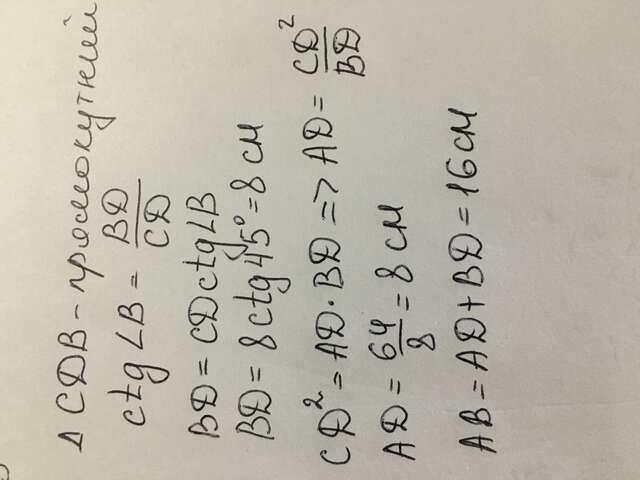 Δ CDB - прямокутний
ctg ∠B = BD/CD
BD = CD ctg ∠B
BD = 8 ctg 45° = 8 см
CD² = AD · BD => AD = CD²/BD
AD = 64/8 = 8 см
AB = AD + BD = 16 см